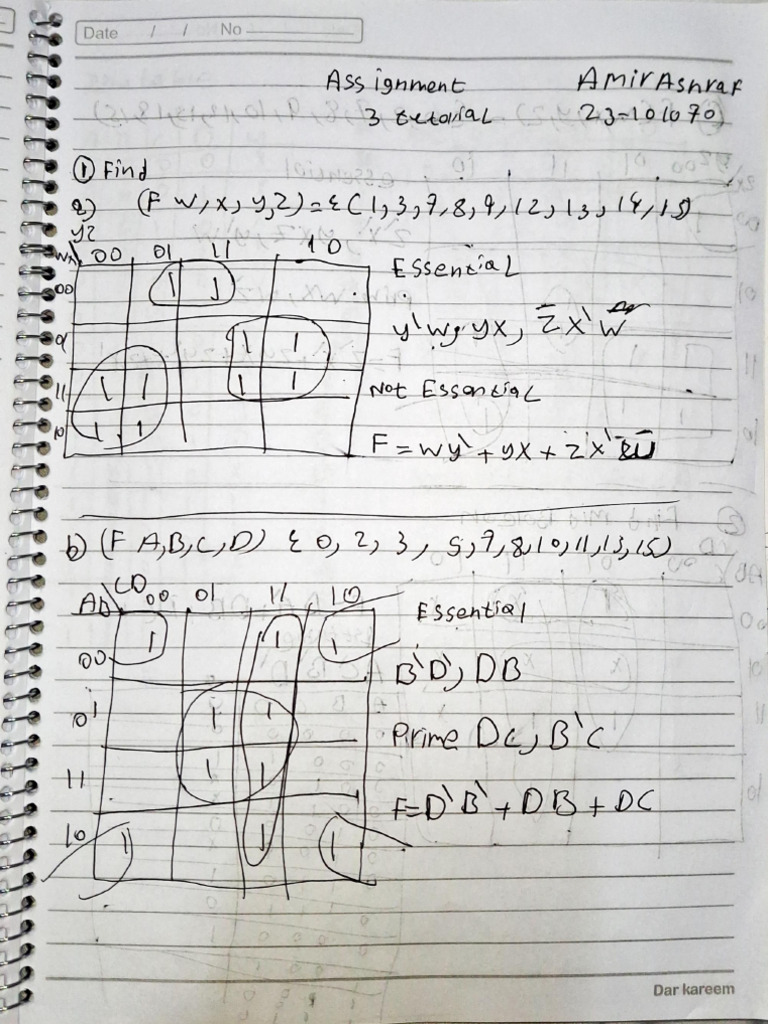 Date / / No
Assignment AmirAshraf
3 tutorial 23-101070
① Find
a) (F w,x,y,z) = Σ(1,3,7,8,9,12,13,14,15)
yz
wx 00 01 11 10
00 1 1
01 1 1
11 1 1 1 1
10 1 1
Essential
y'w, yx, z x' w
Not Essential
F = wy' + yx + z x'
b) (F A,B,C,D) Σ 0, 2, 3, 5, 7, 8, 10, 11, 13, 15)
AB\CD 00 01 11 10
00 1 1
01 1 1
11 1 1
10 1 1 1
Essential
B'D', DB
Prime DC, B'C
F = D'B' + DB + DC
Dar kareem